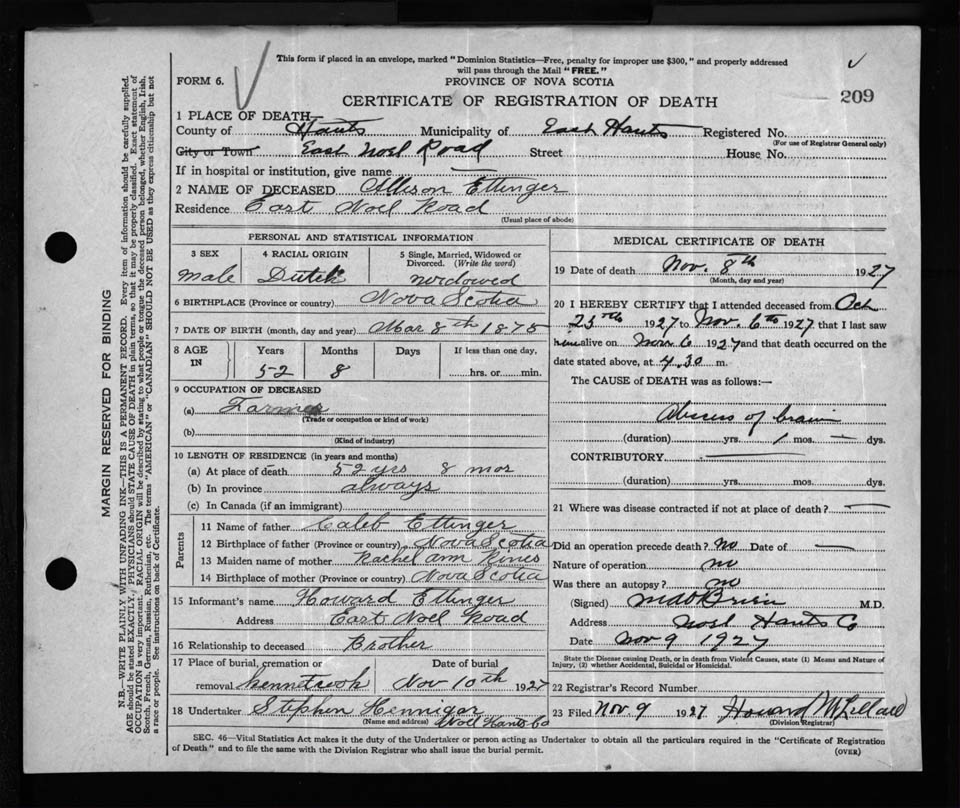 This form if placed in an envelope, marked "Dominion Statistics—Free, penalty for improper use $300," and properly addressed
will pass through the Mail "FREE."
FORM 6.
PROVINCE OF NOVA SCOTIA
CERTIFICATE OF REGISTRATION OF DEATH
209
1 PLACE OF DEATH—
County of Hants Municipality of East Hants Registered No.
(For use of Registrar General only)
City or Town East Noel Road Street House No.
If in hospital or institution, give name —
2 NAME OF DECEASED Allison Ettinger
Residence East Noel Road
(Usual place of abode)
PERSONAL AND STATISTICAL INFORMATION
3 SEX 4 RACIAL ORIGIN 5 Single, Married, Widowed or
Divorced. (Write the word)
Male Dutch widowed
6 BIRTHPLACE (Province or country) Nova Scotia
7 DATE OF BIRTH (month, day and year) Mar 8th 1875
8 AGE IN Years Months Days If less than one day,
52 8 hrs. or min.
9 OCCUPATION OF DECEASED
(a) Farmer
(Trade or occupation or kind of work)
(b)
(Kind of industry)
10 LENGTH OF RESIDENCE (in years and months)
(a) At place of death 52 yrs 8 mos
(b) In province always
(c) In Canada (if an immigrant)
Parents
11 Name of father Caleb Ettinger
12 Birthplace of father (Province or country) Nova Scotia
13 Maiden name of mother Rachel Ann
14 Birthplace of mother (Province or country) Nova Scotia
15 Informant's name Howard Ettinger
Address East Noel Road
16 Relationship to deceased Brother
17 Place of burial, cremation or Date of burial
removal Kennetcook Nov 10th 1927
18 Undertaker Stephen Hennigar
(Name and address) Noel Hants Co
MEDICAL CERTIFICATE OF DEATH
19 Date of death Nov. 8th 1927
(Month, day and year)
20 I HEREBY CERTIFY that I attended deceased from Oct
25th 1927 to Nov. 6th 1927 that I last saw
him alive on Nov 6 1927 and that death occurred on the
date stated above, at 4.30 m.
The CAUSE of DEATH was as follows:—
Abscess of brain
(duration) yrs. 1 mos. — dys.
CONTRIBUTORY —
(duration) yrs. mos. dys.
21 Where was disease contracted if not at place of death? —
Did an operation precede death? no Date of —
Nature of operation no
Was there an autopsy? no
(Signed) O'Brien M.D.
Address Noel Hants Co
Date Nov 9 1927
State the Disease causing Death, or in death from Violent Causes, state (1) Means and Nature of
Injury, (2) whether Accidental, Suicidal or Homicidal.
22 Registrar's Record Number
23 Filed Nov. 9 1927 Howard
(Division Registrar)
SEC. 46—Vital Statistics Act makes it the duty of the Undertaker or person acting as Undertaker to obtain all the particulars required in the "Certificate of Registration
of Death" and to file the same with the Division Registrar who shall issue the burial permit.
(OVER)
MARGIN RESERVED FOR BINDING
N.B.—WRITE PLAINLY WITH UNFADING INK—THIS IS A PERMANENT RECORD. Every item of information should be carefully supplied.
AGE should be stated EXACTLY. PHYSICIANS should STATE CAUSE OF DEATH in plain terms, so that it may be properly classified. Exact statement of
OCCUPATION is very important. RACIAL ORIGIN will be described by stating to what people or tongue the deceased person belonged, whether English, Irish,
Scotch, French, German, Russian, Ruthenian, etc. The terms "AMERICAN" or "CANADIAN" SHOULD NOT BE USED as they express citizenship but not
a race or people. See instructions on back of Certificate.